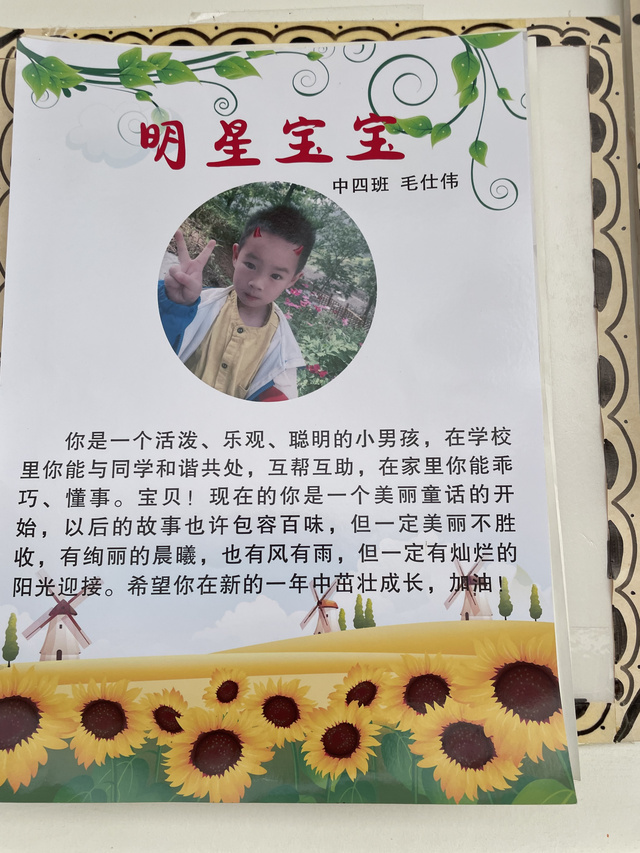 明星宝宝
中四班 毛仕伟
你是一个活泼、乐观、聪明的小男孩，在学校
里你能与同学和谐共处，互帮互助，在家里你能乖
巧、懂事。宝贝！现在的你是一个美丽童话的开
始，以后的故事也许包容百味，但一定美丽不胜
收，有绚丽的晨曦，也有风有雨，但一定有灿烂的
阳光迎接。希望你在新的一年中茁壮成长，加油！